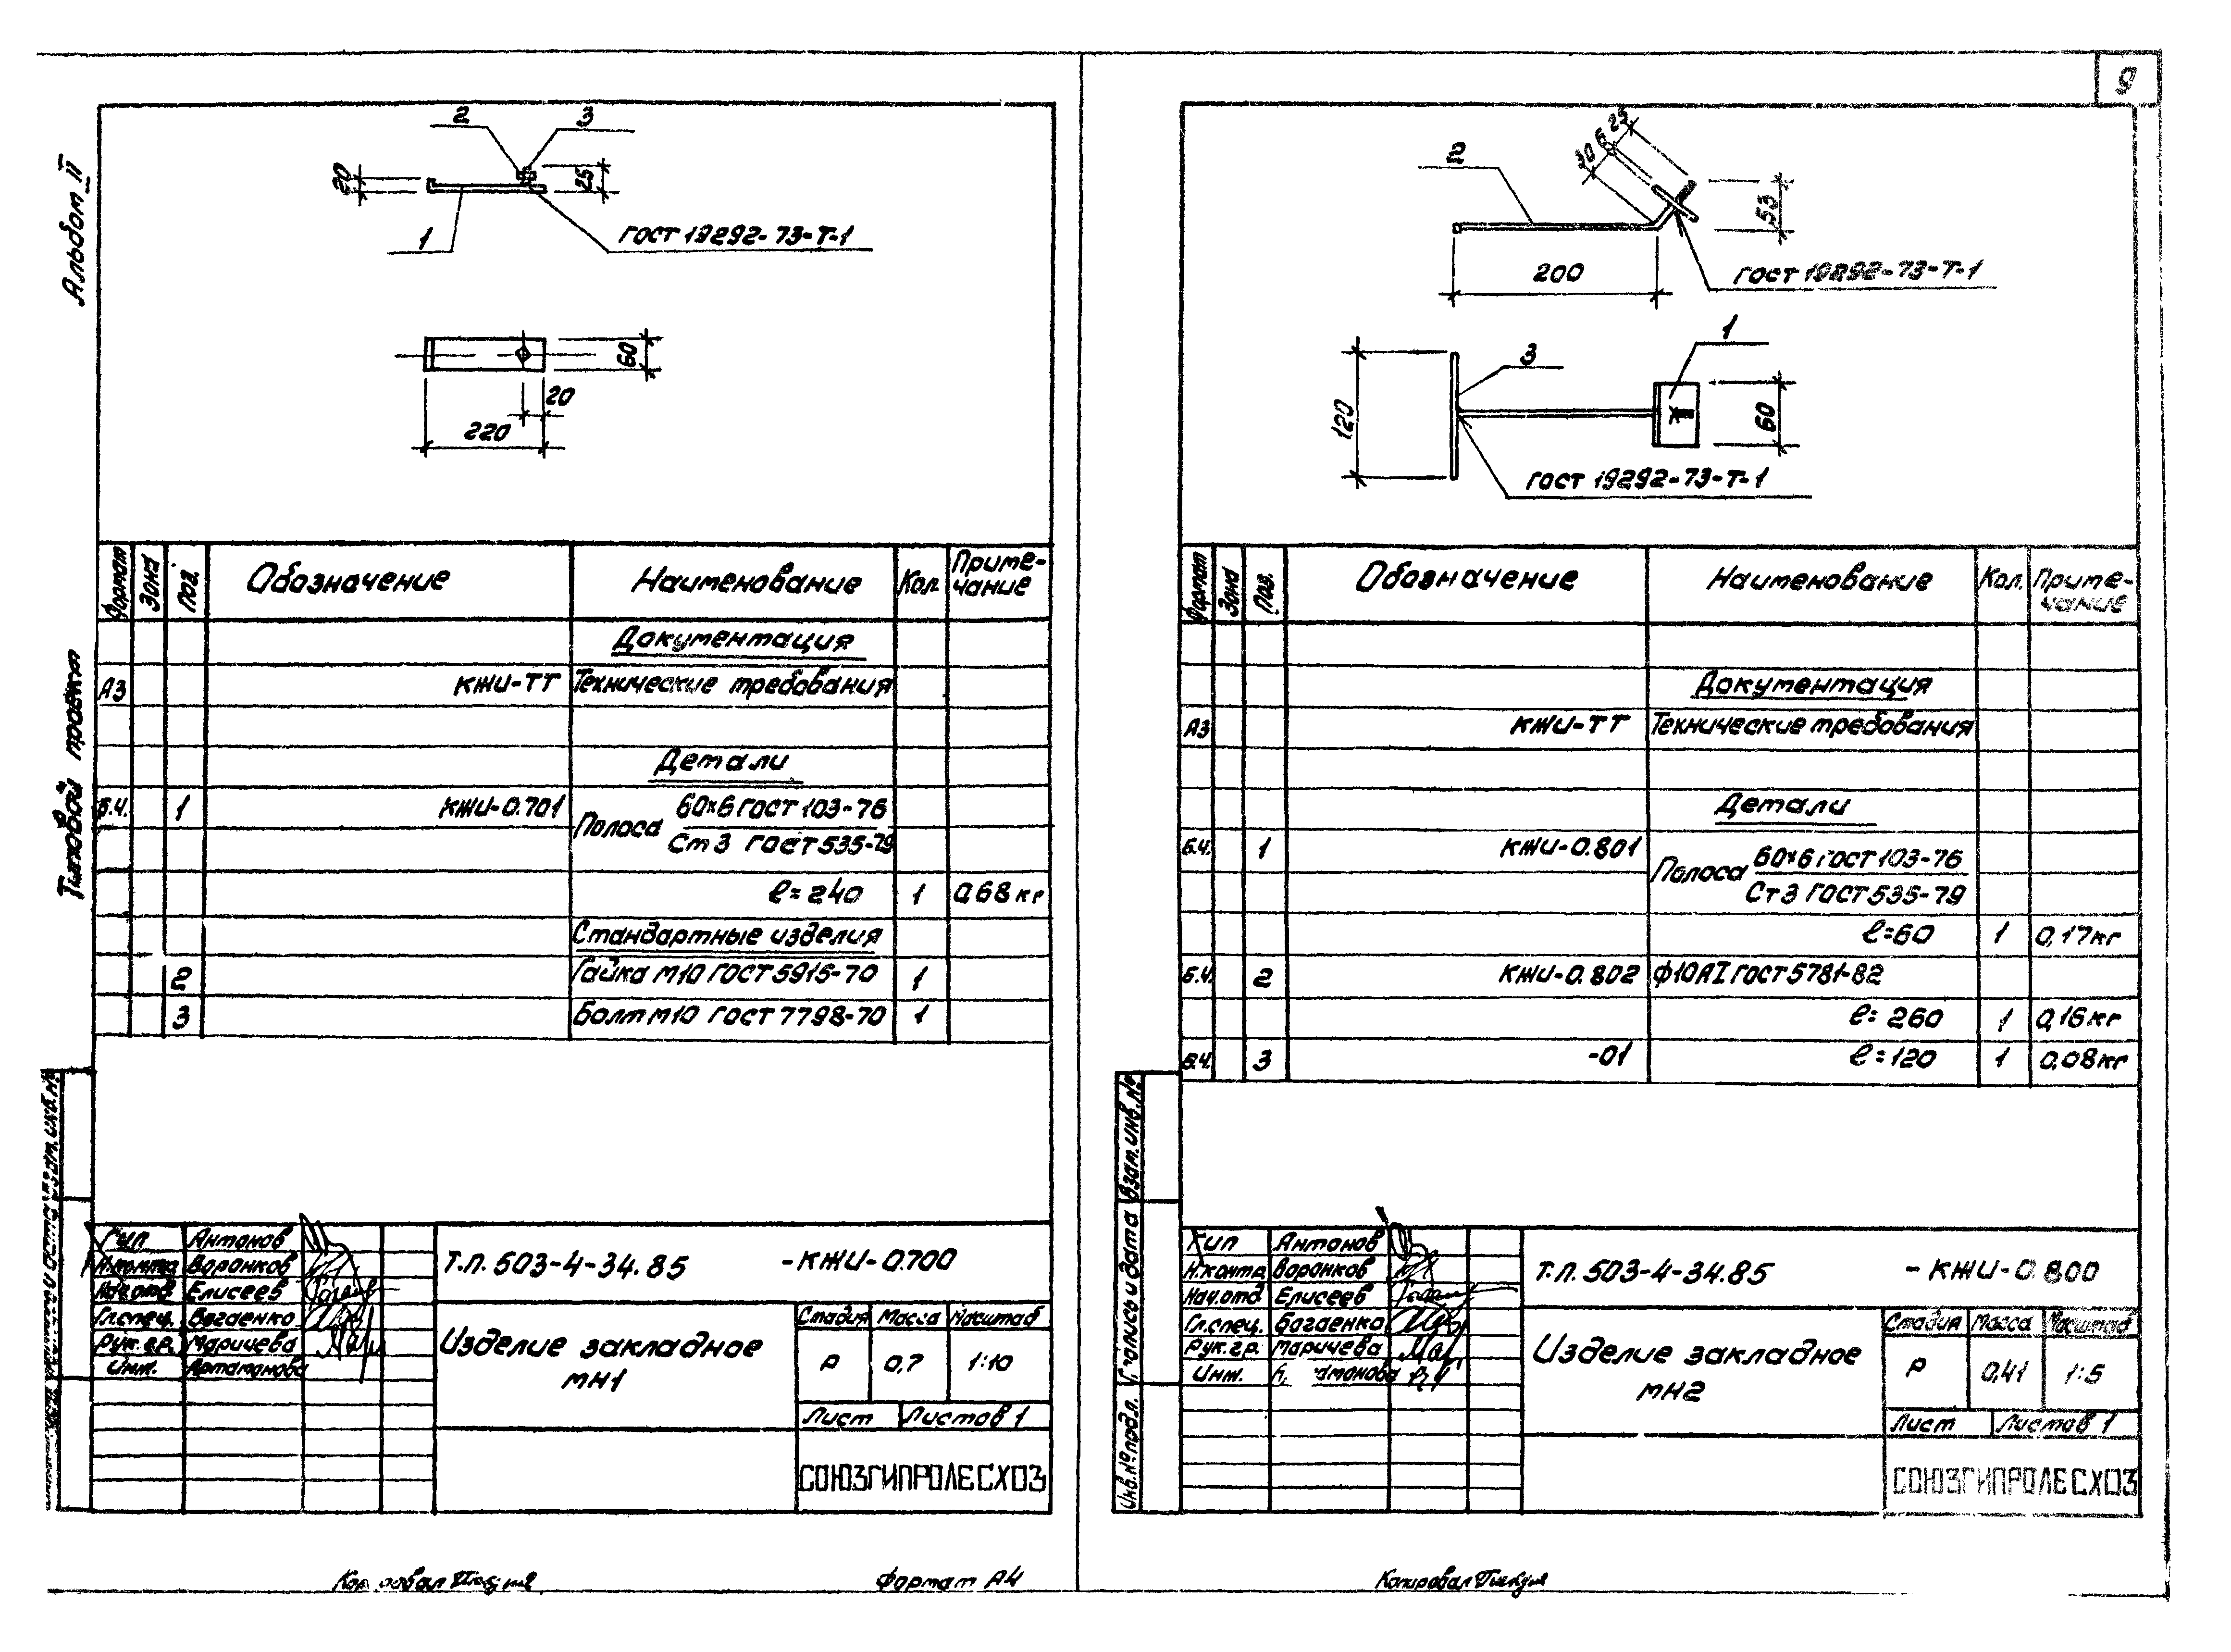 9
Альбом II
Типовой проект
2
3
20
25
1
ГОСТ 19292-73-Т-1
60
20
220
Формат
Зона
Поз.
Обозначение
Наименование
Кол.
Приме-
чание
Документация
А3 КЖИ-ТТ Технические требования
Детали
Б.Ч. 1 КЖИ-0.701 Полоса 60×6 ГОСТ 103-76
Ст 3 ГОСТ 535-79
ℓ=240 1 0,68 кг
Стандартные изделия
2 Гайка М10 ГОСТ 5915-70 1
3 Болт М10 ГОСТ 7798-70 1
ГИП Антонов
Н.контр Воронков
Нач.отд Елисеев
Гл.спец. Богаенко
Рук.гр. Маричева
Инж. Артамонова
Т.П. 503-4-34.85 -КЖИ-0.700
Изделие закладное
МН1
Стадия Масса Масштаб
Р 0,7 1:10
Лист Листов 1
СОЮЗГИПРОЛЕСХОЗ
Формат А4
25
6
30
2
53
200
ГОСТ 19292-73-Т-1
1
3
120
60
ГОСТ 19292-73-Т-1
Формат
Зона
Поз.
Обозначение
Наименование
Кол.
Приме-
чание
Документация
А3 КЖИ-ТТ Технические требования
Детали
Б.Ч. 1 КЖИ-0.801 Полоса 60×6 ГОСТ 103-76
Ст 3 ГОСТ 535-79
ℓ=60 1 0,17кг
Б.Ч. 2 КЖИ-0.802 ф10АI ГОСТ 5781-82
ℓ= 260 1 0,16кг
Б.Ч. 3 -01 ℓ=120 1 0,08кг
Взам.инв.№
Подпись и дата
Инв.№ подл.
ГИП Антонов
Н.контр Воронков
Нач.отд Елисеев
Гл.спец. Богаенко
Рук.гр. Маричева
Инж.
Т.П. 503-4-34.85 -КЖИ-0.800
Изделие закладное
МН2
Стадия Масса Масштаб
Р 0,41 1:5
Лист Листов 1
СОЮЗГИПРОЛЕСХОЗ
Копировал